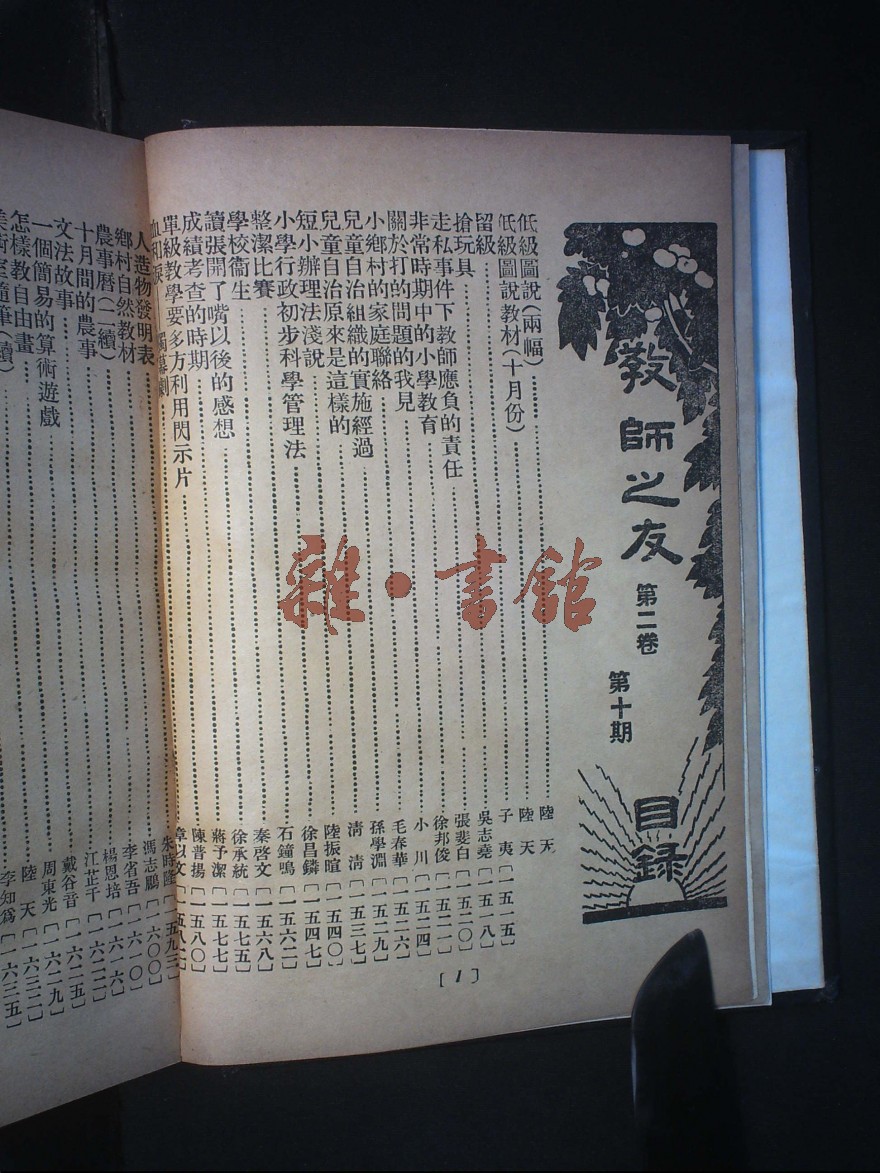 教師之友
第二卷
第十期
目錄
低級圖說(兩幅)……陸天
低級圖說教材(十月份)……陸天
留級……子夷〔一五一五〕
搶玩具……吳志堯〔一五一八〕
走私事件下教師應負的責任……張斐白〔一五二〇〕
非常時期中的小學教育……徐邦俊〔一五二一〕
關於打的問題的我見……小川〔一五二四〕
小鄉村的家庭聯絡……毛春華〔一五二六〕
兒童自治組織的實施經過……孫學淵〔一五二九〕
兒童自治原來是這樣的……清清〔一五三七〕
短小辦理法淺說……陸振暄〔一五四〇〕
小學行政初步科學管理法……徐昌鏻〔一五四七〕
整潔比賽……石鐘鳴〔一五六二〕
學校衞生……秦啓文〔一五六八〕
讀張開了嘴以後的感想……徐承統〔一五七五〕
成績考查的時期……蔣予潔〔一五七七〕
單級教學要多方利用閃示片……陳普揚〔一五八〇〕
血和淚 獨幕劇……章以文〔一五八二〕
〔1〕
人造物發明表……朱時隆〔一五九三〕
鄉村自然教材……馮志鵬〔一六〇〇〕
農事曆(二續)……李省吾〔一六一〇〕
十月間的農事……楊恩培〔一六一六〕
文法故事……江芷千〔一六二二〕
一個簡易的算術遊戲……戴谷音〔一六二五〕
怎樣教自由畫……周東光〔一六二九〕
美術室隨筆(續)……陸天〔一六三二〕
李知爲〔一六三五〕
雜·書館